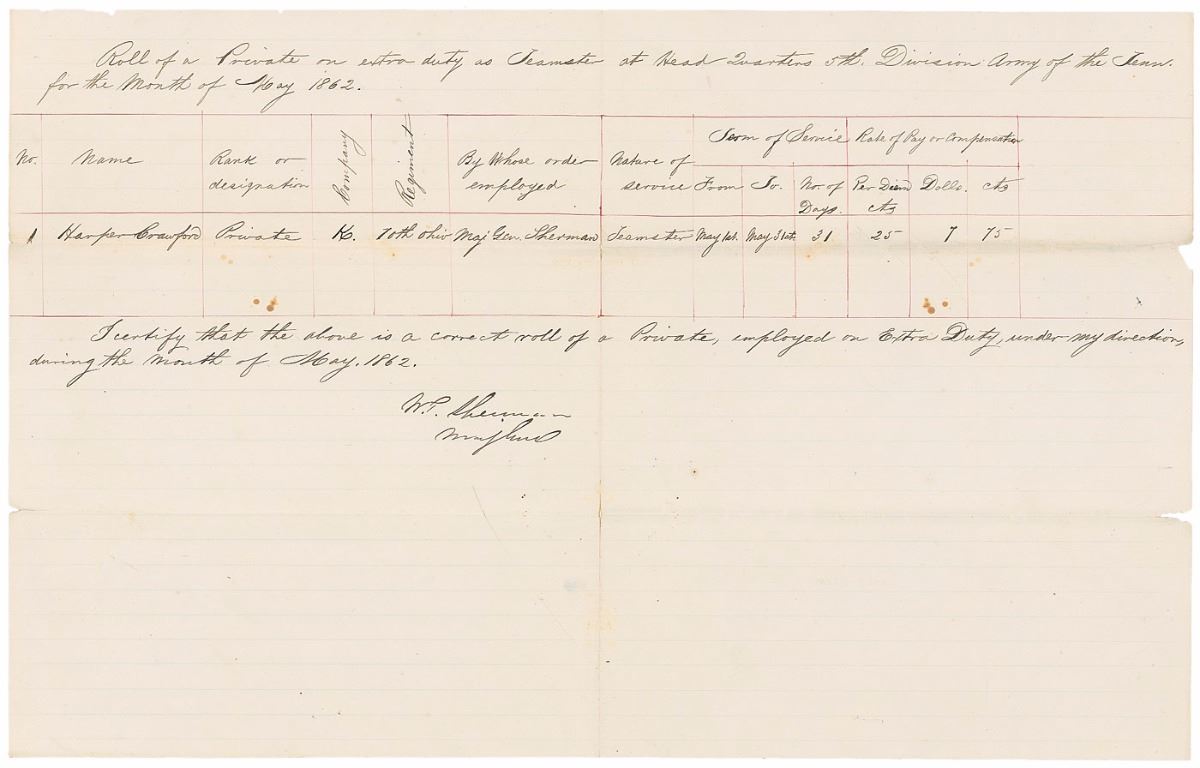 Roll of a Private on extra duty as Teamster at Head Quarters 5th. Division Army of the Tenn.
for the Month of May 1862.
No. Name Rank or designation Company Regiment By Whose order employed Nature of service Term of Service From To. No. of Days. Rate of Pay or Compensation Per Diem cts Dolls. cts
1 Harper Crawford Private K. 70th Ohio Maj Gen. Sherman Teamster May 1st. May 31st. 31 25 7 75
I certify that the above is a correct roll of a Private, employed on Extra Duty, under my direction,
during the month of May. 1862.
W.T. Sherman
Maj Genl